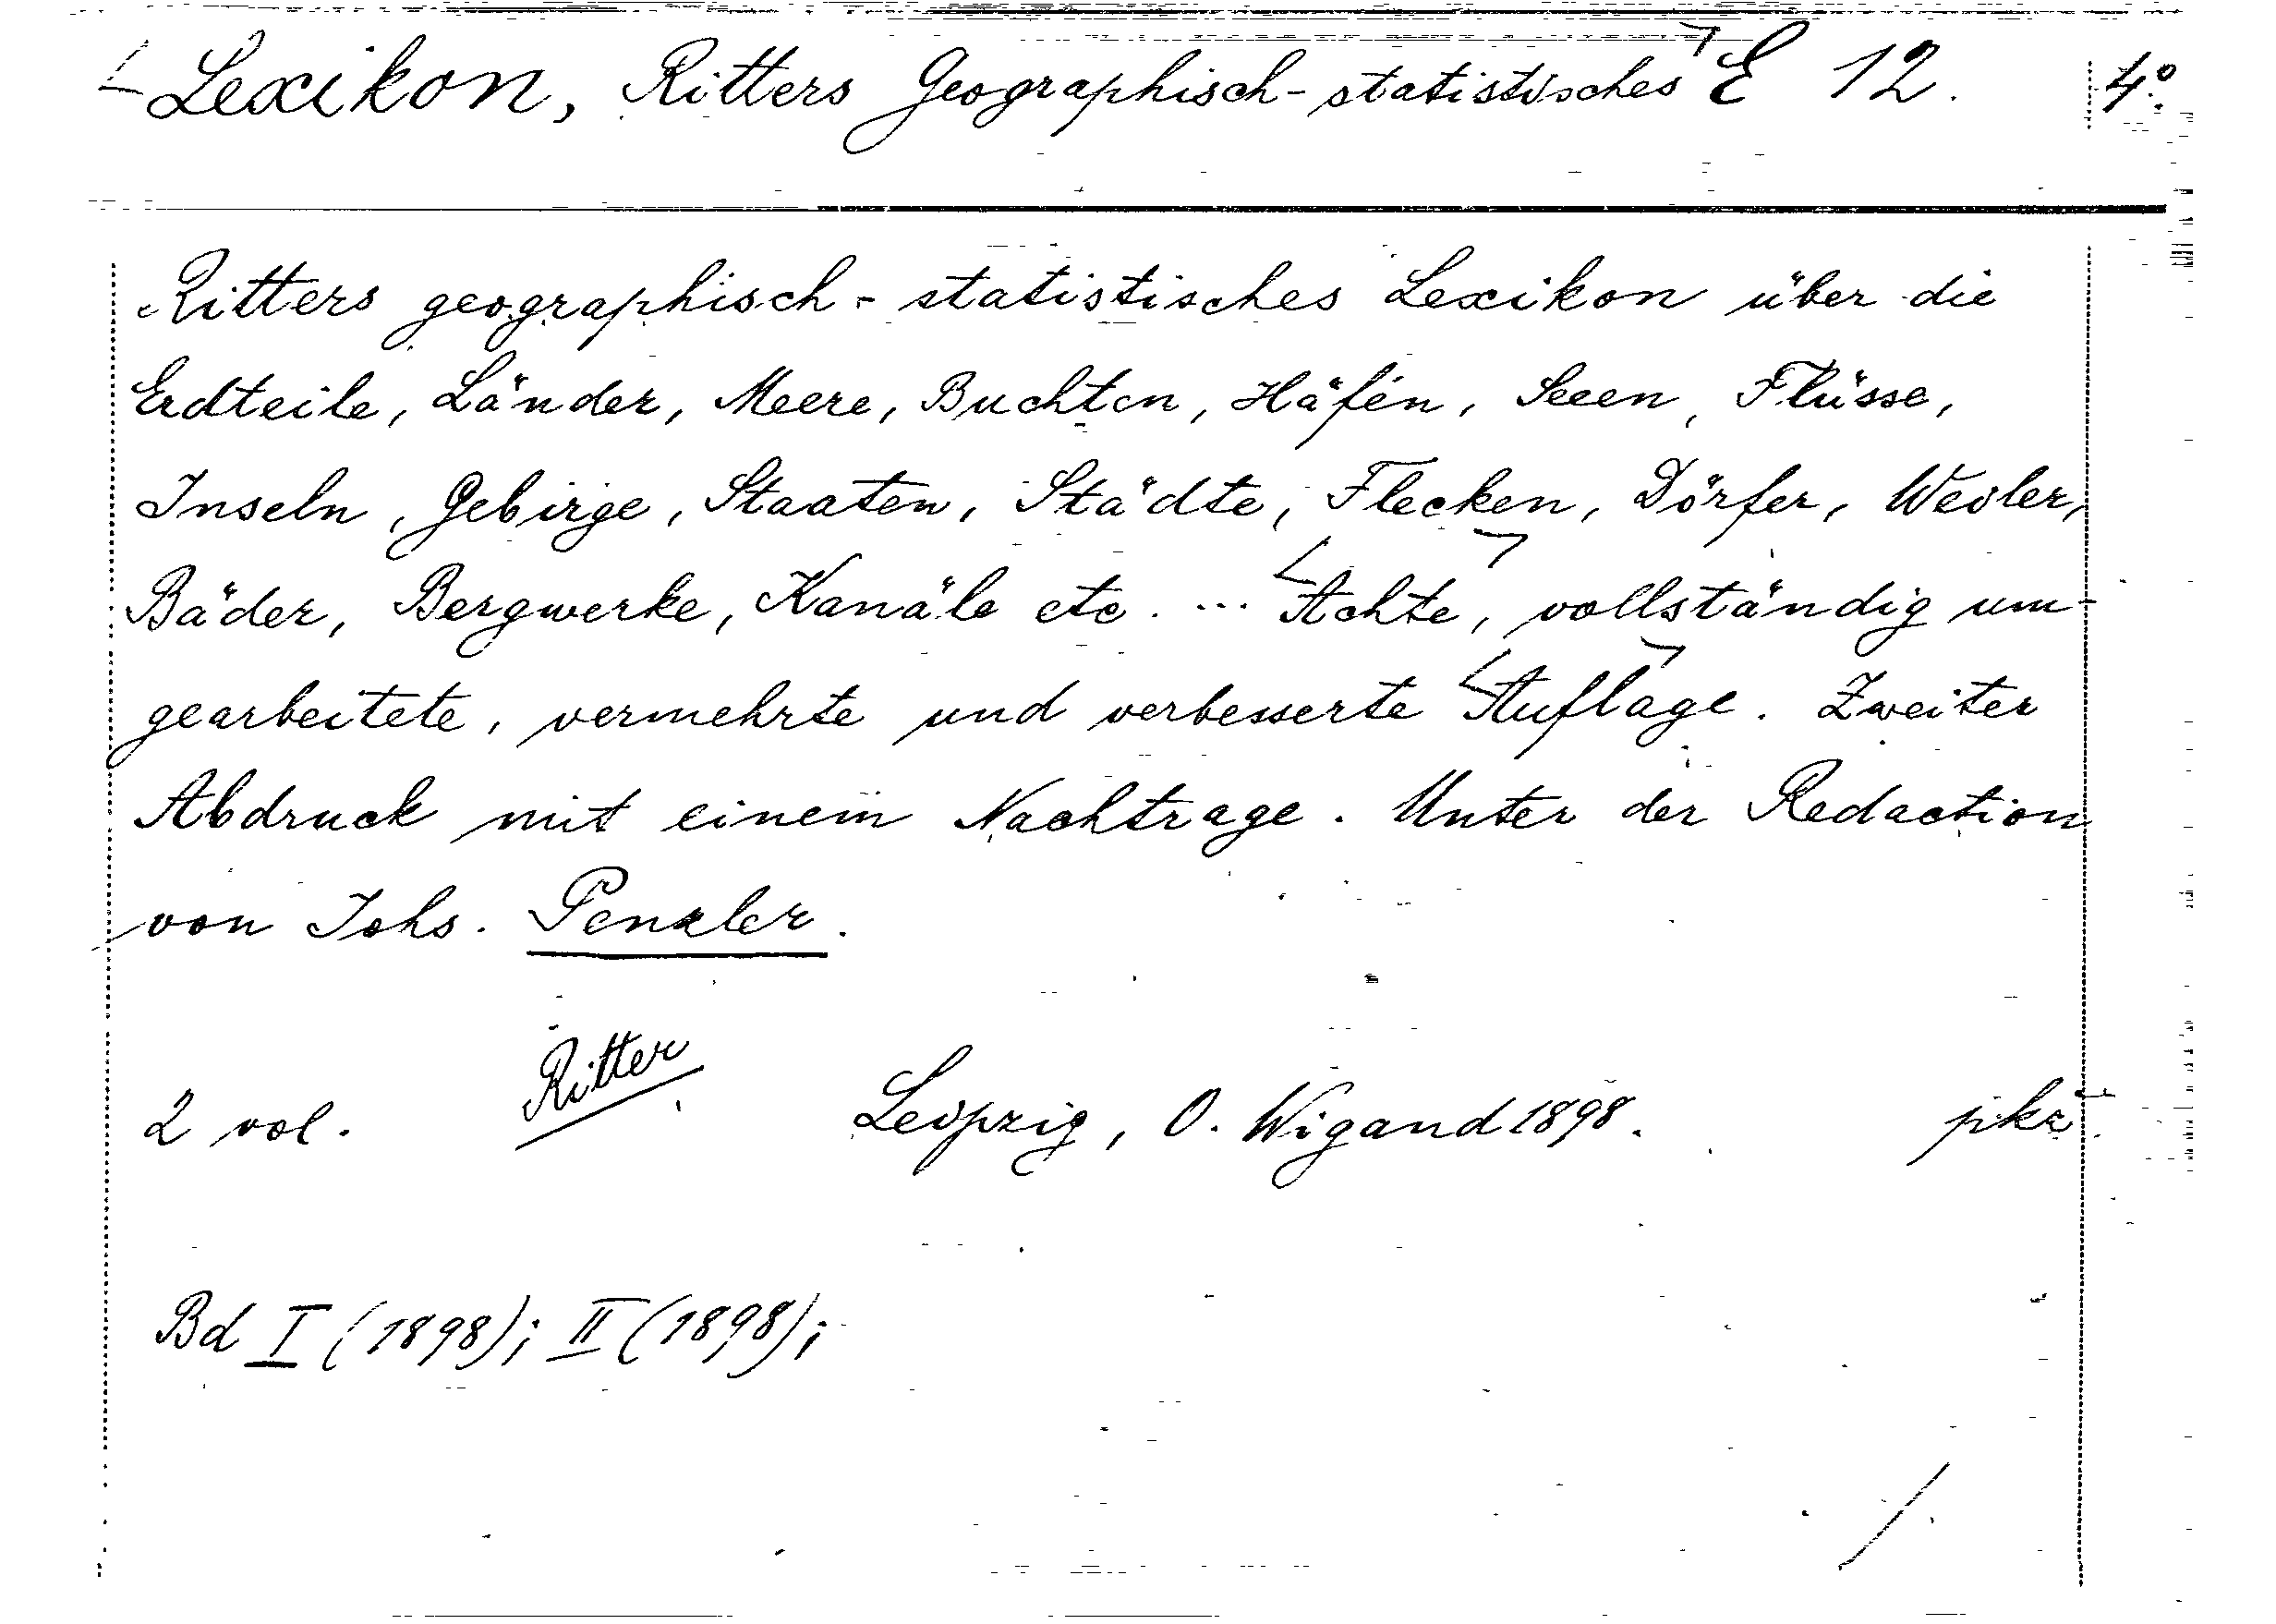 Lexikon, Ritters Geographisch-statistisches E 12. 4°.
Ritters geographisch-statistisches Lexikon über die
Erdteile, Länder, Meere, Buchten, Häfen, Seeen, Flüsse,
Inseln, Gebirge, Staaten, Städte, Flecken, Dörfer, Weiler,
Bäder, Bergwerke, Kanäle etc. ... Achte, vollständig um-
gearbeitete, vermehrte und verbesserte Auflage. Zweiter
Abdruck mit einem Nachtrage. Unter der Redaction
von Johs. Penzler.
Ritter
2 vol. Leipzig, O. Wigand 1898.
Bd I (1898); II (1898);